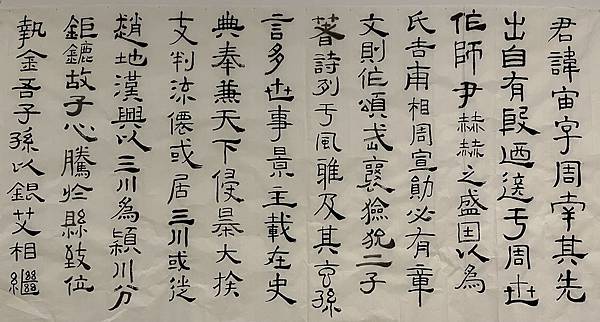 君諱宙字周南其先
出自有殷迺迄于周世
作師尹赫赫之盛因以為
氏吉甫相周宣勛必有章
文則作頌武襄獫狁二子
著詩列于風雅及其玄孫
言多世事景王載在史
典秦兼天下侵暴大族
支判流僊或居三川或徙
趙地漢興以三川為潁川分
鉅鏕故子心騰於縣致位
執金吾子孫以銀艾相繼